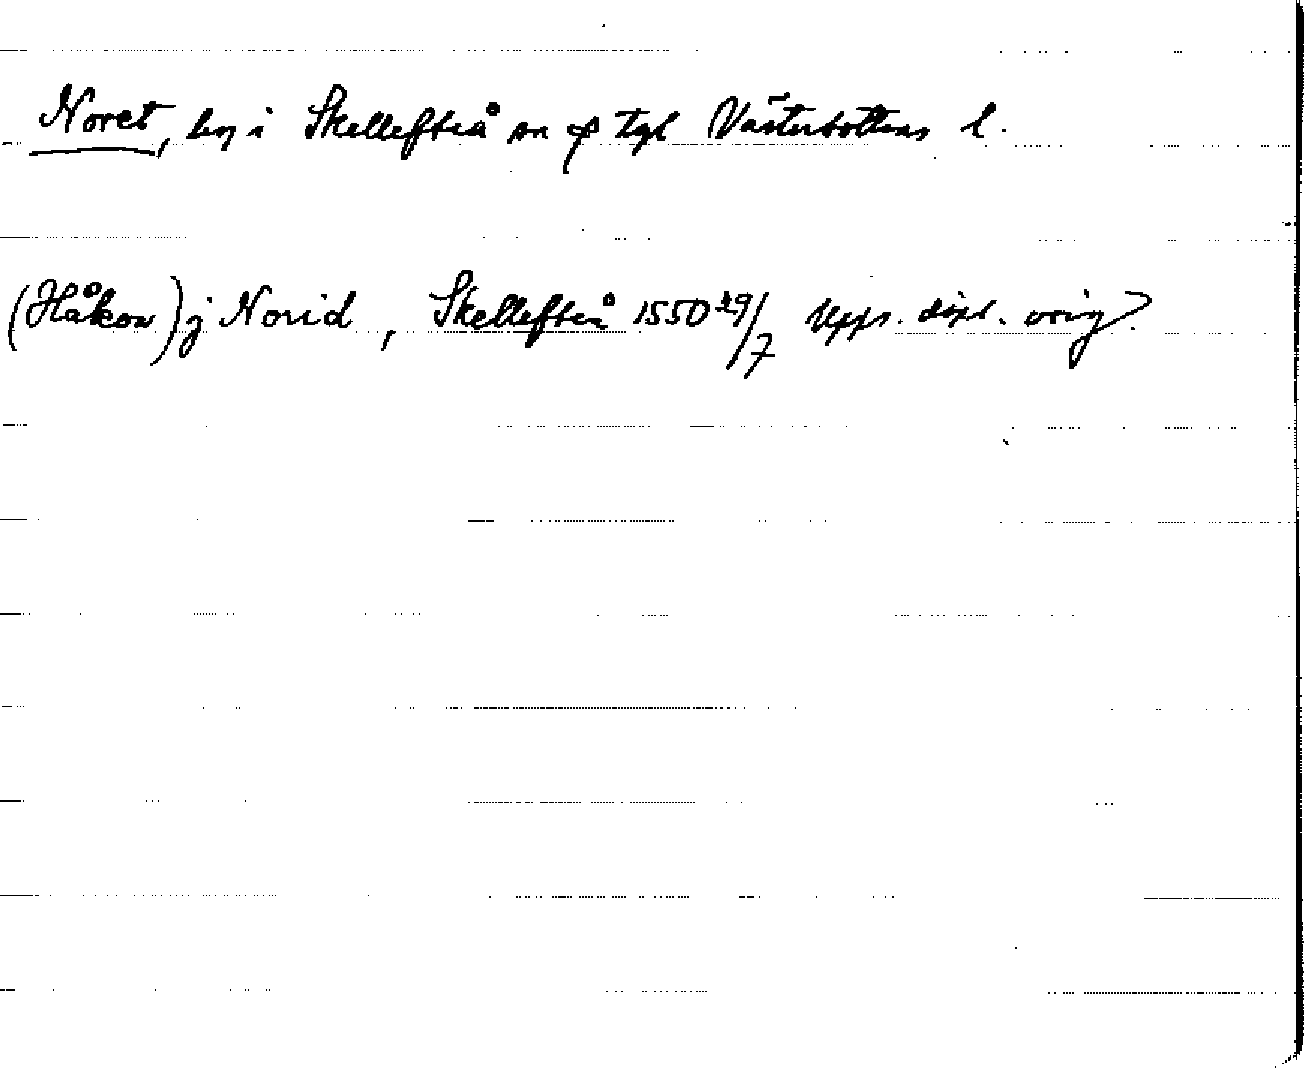 Noret, by i Skellefteå sn o tgl Västerbottens l.
(Håkon) j Norid, Skellefteå 1550 29/7 Upps. dipl. orig?